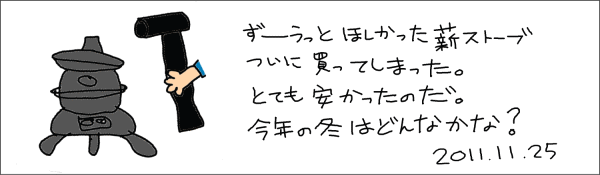 ずーうっと ほしかった 薪ストーブ
ついに 買ってしまった。
とても 安かったのだ。
今年の冬はどんなかな？
2011.11.25